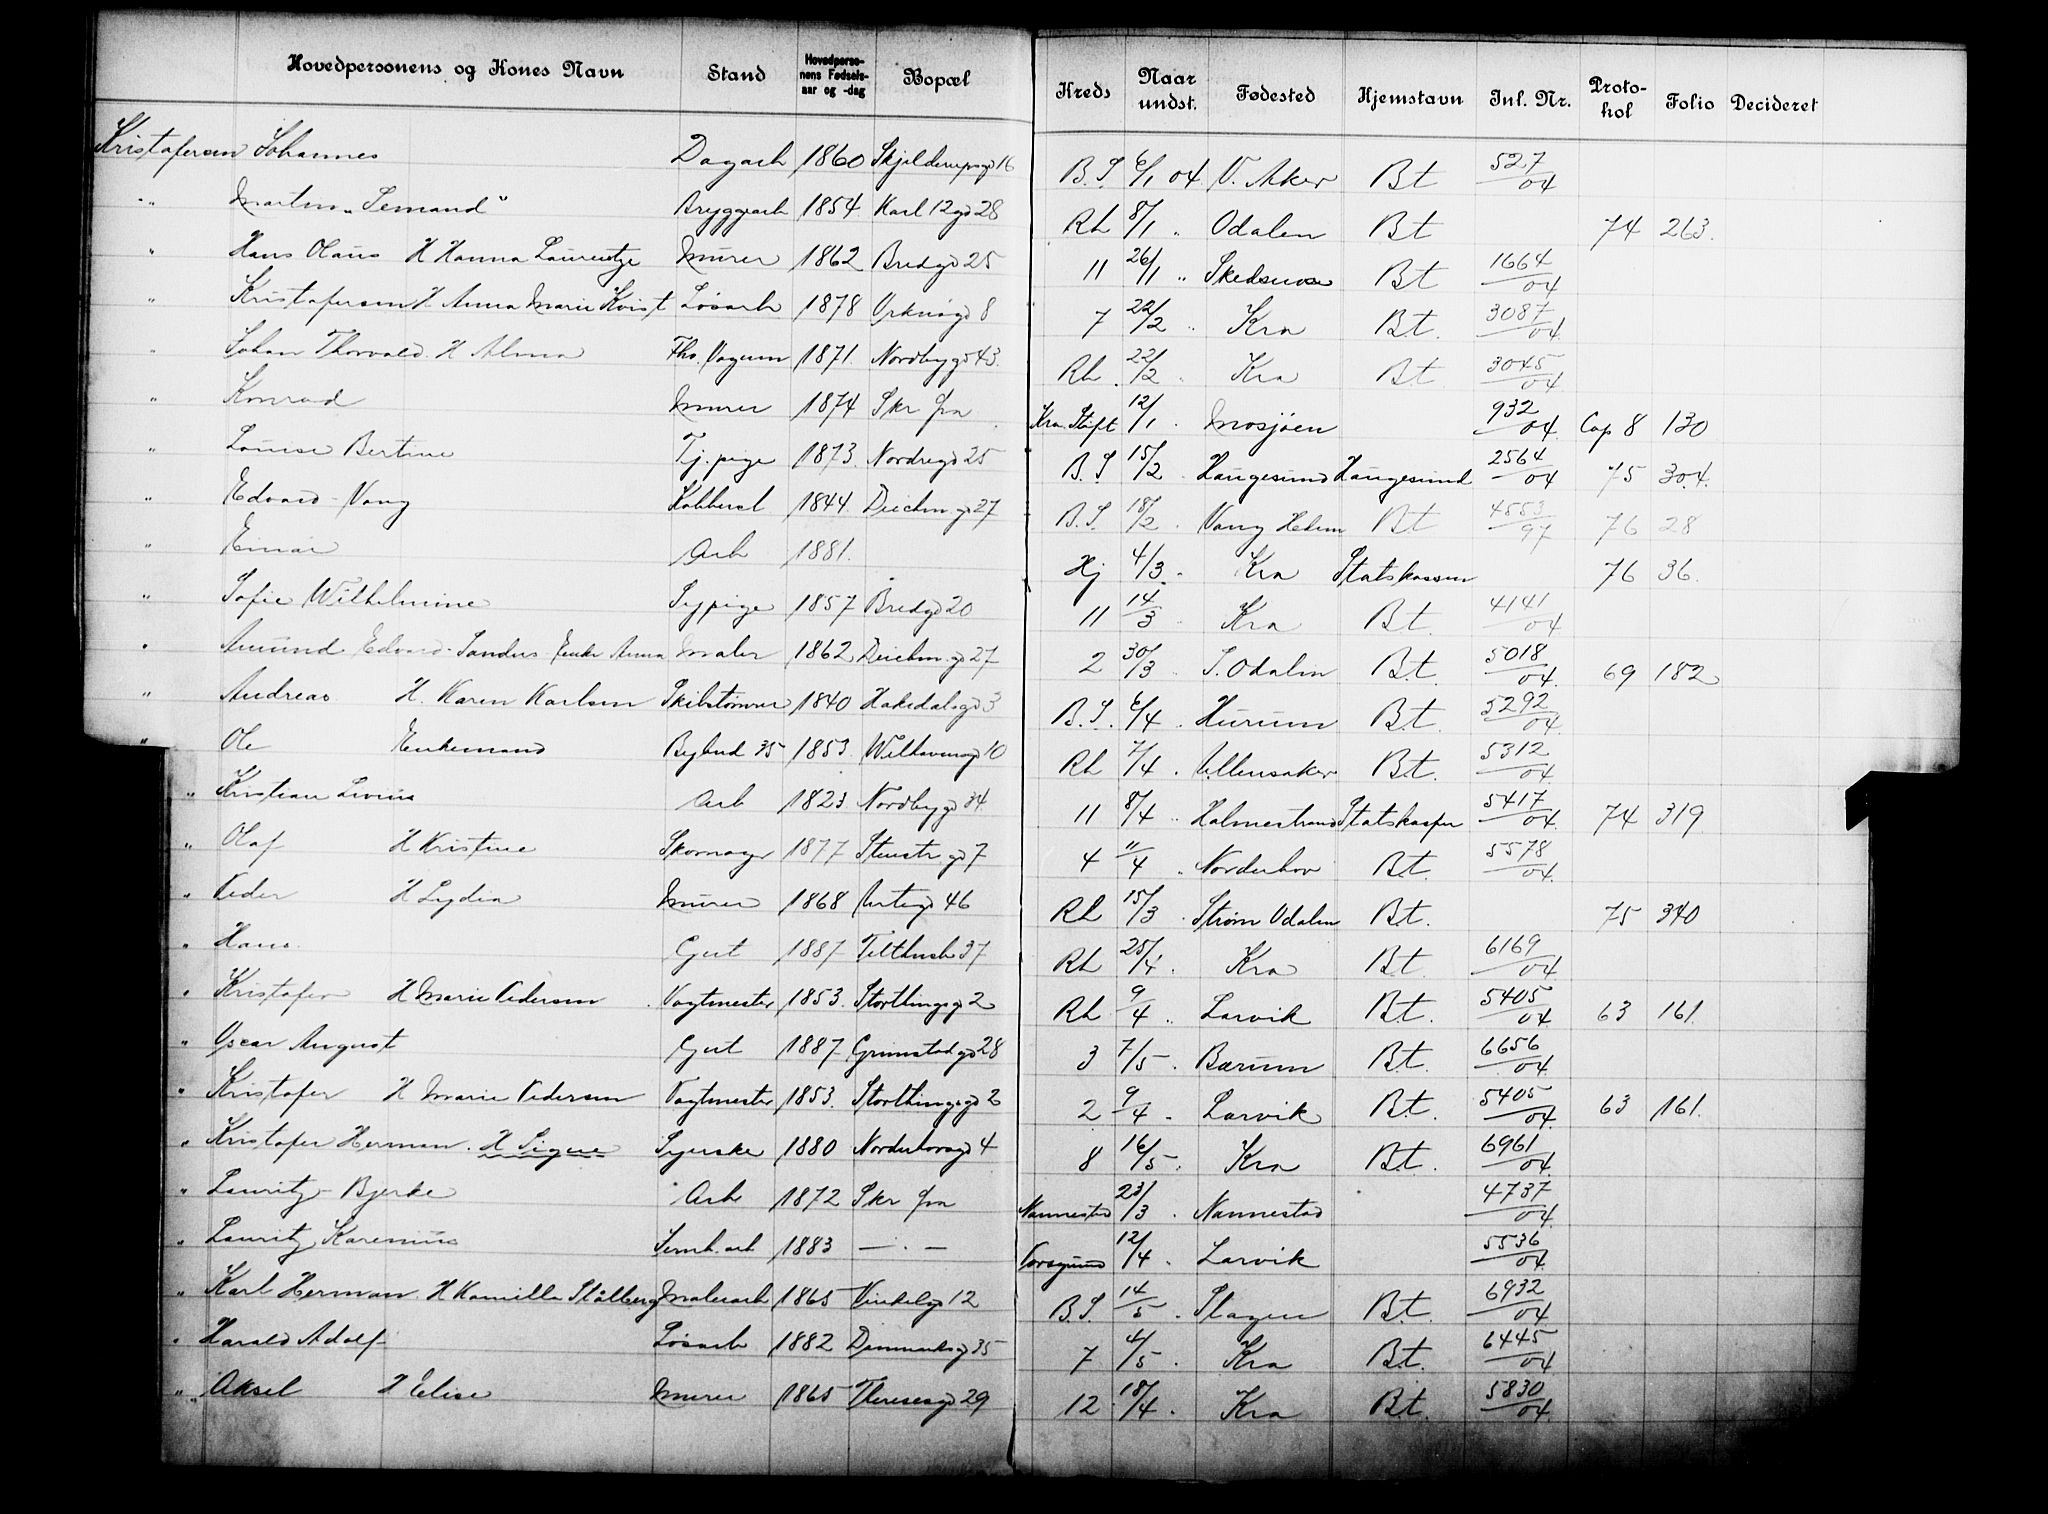 Hovedpersonens og Kones Navn Stand Hovedperso-nens Fødsels-aar og -dag Bopæl Kreds Naar undst. Fødested Hjemstavn Inl. Nr. Proto-kol Folio Decideret
Kristofersen Johannes Dagarb 1860 Skjolderupsgd 16 B.S. 6/1 04 V. Aker Bt 527/04
" Martin "Semand" Bryggearb 1854 Karl 12gd 28 Rh 8/1 " Odalen Bt 74 263.
" Hans Olaus H Hanna Laurentze Murer 1862 Bredgd 25 11 26/1 " Skedsmo Bt 1664/04
" Kristofersen H. Anna Marie Kvist Løsarb 1878 Orknøgd 8 7 22/2 " Kra Bt. 3087/04
" Johan Thorvald. H Alma Fhv. Vognm 1871. Nordbygd 43. Rh. 22/2 " Kra Bt. 3045/04
" Konrad Murer 1874 Skr fra Kra Stift 12/1 " Mosjøen 932/04 Cop 8 130
" Louise Bertine Tj. pige 1873. Nordregd 25 B.S 15/2 " Haugesund Haugesund 2564/04 75 304.
" Edvard - Vang Kobbersl 1844. Deichm.gd 27 B.S. 18/2 " Vang Hedm Bt 4553/97 76 28
" Einar Arb 1881. Hj 4/3 " Kra Statskassen 76 36.
" Sofie Wilhelmine Sypige 1857 Bredgd 20 11 14/3 " Kra Bt. 4141/04
" Amund Edvard - Sandus Enke Anna Maler 1862 Deichm.gd 27 2 30/3 " S. Odalen Bt. 5018/04 69 182
" Andreas H. Karen Karlsen Skibstømrer 1840 Hakedalsgd 3 B.S. 6/4 " Hurum Bt. 5292/04
" Ole Enkemand Bygbud 35 1853. Wilhavensgd 10 Rh 7/4 " Ullensaker Bt. 5312/04
" Kristian Livius Arb 1823 Nordbygd 34 11 8/4 " Holmestrand Statskassen 5417/04 74 319
" Olaf H Kristine Skomager 1877 Stenstr.gd 7 4 11/4 " Norderhov Bt. 5578/04
" Peder H Lydia Murer 1868 Urtegd 46 Rh 15/3 " Strøm Odalen Bt. 75 340
" Hans Gjert 1887 Telthusb 37 Rh 25/4 " Kra Bt. 6169/04
" Kristofer H Marie Pedersen Vagtmester 1853. Storthingsgd 2 Rh 9/4 " Larvik Bt. 5405/04 63 161.
" Oscar August Gjert 1887 Grimstadgd 28 3 7/5 " Bærum Bt. 6656/04
" Kristofer H Marie Pedersen Vagtmester 1853. Storthingsgd 2 2 9/4 " Larvik Bt. 5405/04 63 161.
" Kristofer Herman. H Signe Syerske 1880 Norderhovsgd 4 8 16/5 " Kra Bt. 6961/04
" Lauritz - Bjerke Arb 1872 Skr fra Nannestad 23/3 " Nannestad 4737/04
" Lauritz Karenius Jernb.arb 1883 — . — 12/4 " Larvik 5536/04
" Karl Herman. H Kamilla Stålberg Malerarb 1865 Vinkelgd 12 B.S. 14/5 " Slagen Bt. 6932/04
" Harald Adolf Løsarb 1882 Danmarksgd 35 7 4/5 " Kra Bt. 6445/04
" Aksel H Elise Murer 1865 Theresesgd 29 12 18/4 " Kra Bt. 5830/04